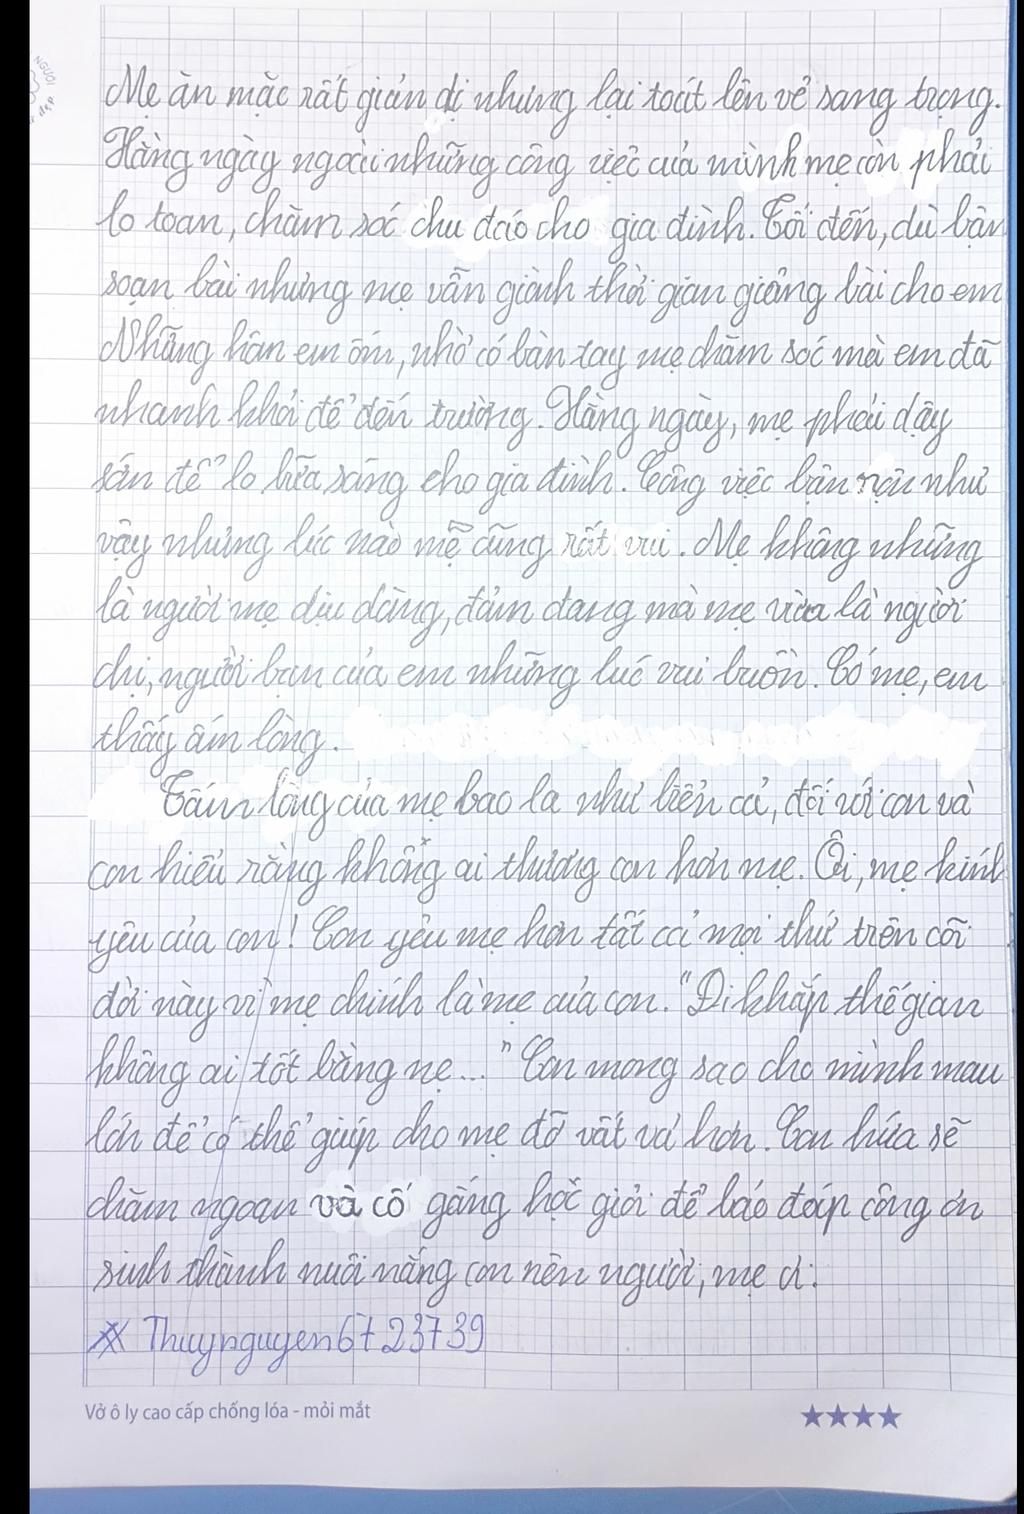 NGƯỜI
Mẹ ăn mặc rất giản dị nhưng lại toát lên vẻ sang trọng.
Hằng ngày ngoài những công việc của mình mẹ còn phải
lo toan, chăm sóc chu đáo cho gia đình. Tối đến, dù bận
soạn bài nhưng mẹ vẫn giành thời gian giảng bài cho em
Những hôm em ốm, nhờ có bàn tay mẹ chăm sóc mà em đã
nhanh khỏi để đến trường. Hằng ngày, mẹ phải dậy
sớm để lo bữa sáng cho gia đình. Công việc bận rộn như
vậy nhưng lúc nào mẹ cũng rất vui. Mẹ không những
là người mẹ dịu dàng, đảm đang mà mẹ vừa là người
chị, người bạn của em những lúc vui buồn. Có mẹ, em
thấy ấm lòng.
Tấm lòng của mẹ bao la như biển cả, đối với con và
con hiểu rằng không ai thương con hơn mẹ. Ôi, mẹ kính
yêu của con! Con yêu mẹ hơn tất cả mọi thứ trên cõi
đời này vì mẹ chính là mẹ của con. "Đi khắp thế gian
không ai tốt bằng mẹ..." Con mong sao cho mình mau
lớn để có thể giúp cho mẹ đỡ vất vả hơn. Con hứa sẽ
chăm ngoan và cố gắng học giỏi để báo đáp công ơn
sinh thành nuôi nấng con nên người, mẹ ơi.
Thuynguyen6723739
Vở ô ly cao cấp chống lóa - mỏi mắt